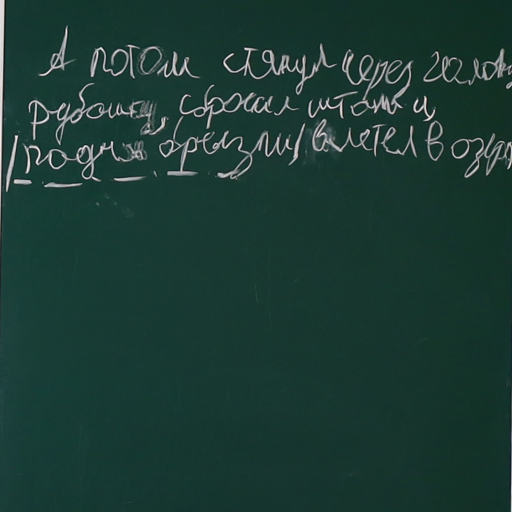 А потом стянул через голову
рубашку, сбросил штаны и,
подняв брызги, влетел в озеро